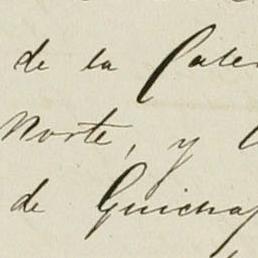 de la Cale
Norte, y
de Guichap